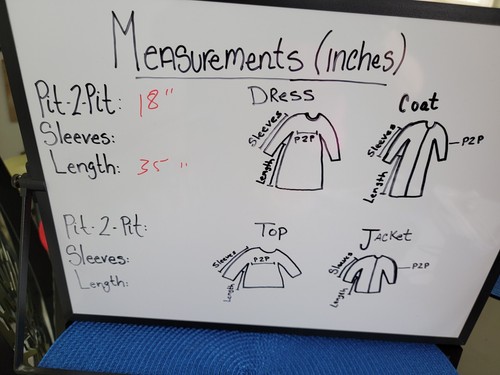 Measurements (inches)
Pit-2-Pit: 18"
Sleeves:
Length: 35"
Dress
Sleeves
P2P
Length
Coat
Sleeves
P2P
Length
Pit-2-Pit:
Sleeves:
Length:
Top
Sleeves
P2P
Length
Jacket
Sleeves
P2P
Length